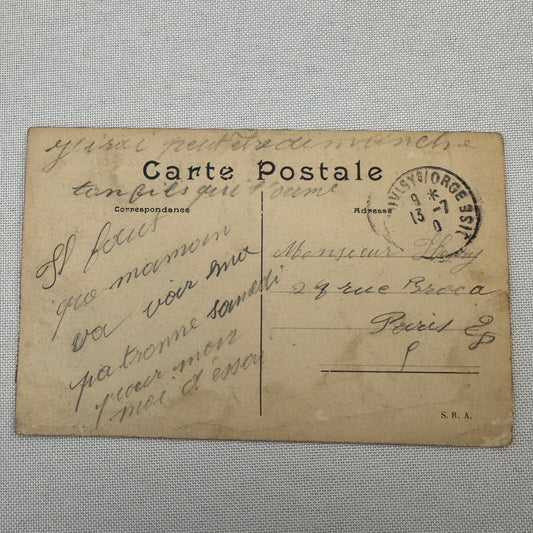 j'irai peut etre dimanche
Carte Postale
ton fils qui t'aime
Correspondance
Adresse
Il faut
que maman
va voir ma
patronne samedi
pour mon
moi d'essai
Monsieur
29 rue Broca
Paris
S/ORGE
9 *
13 -7
S. R. A.